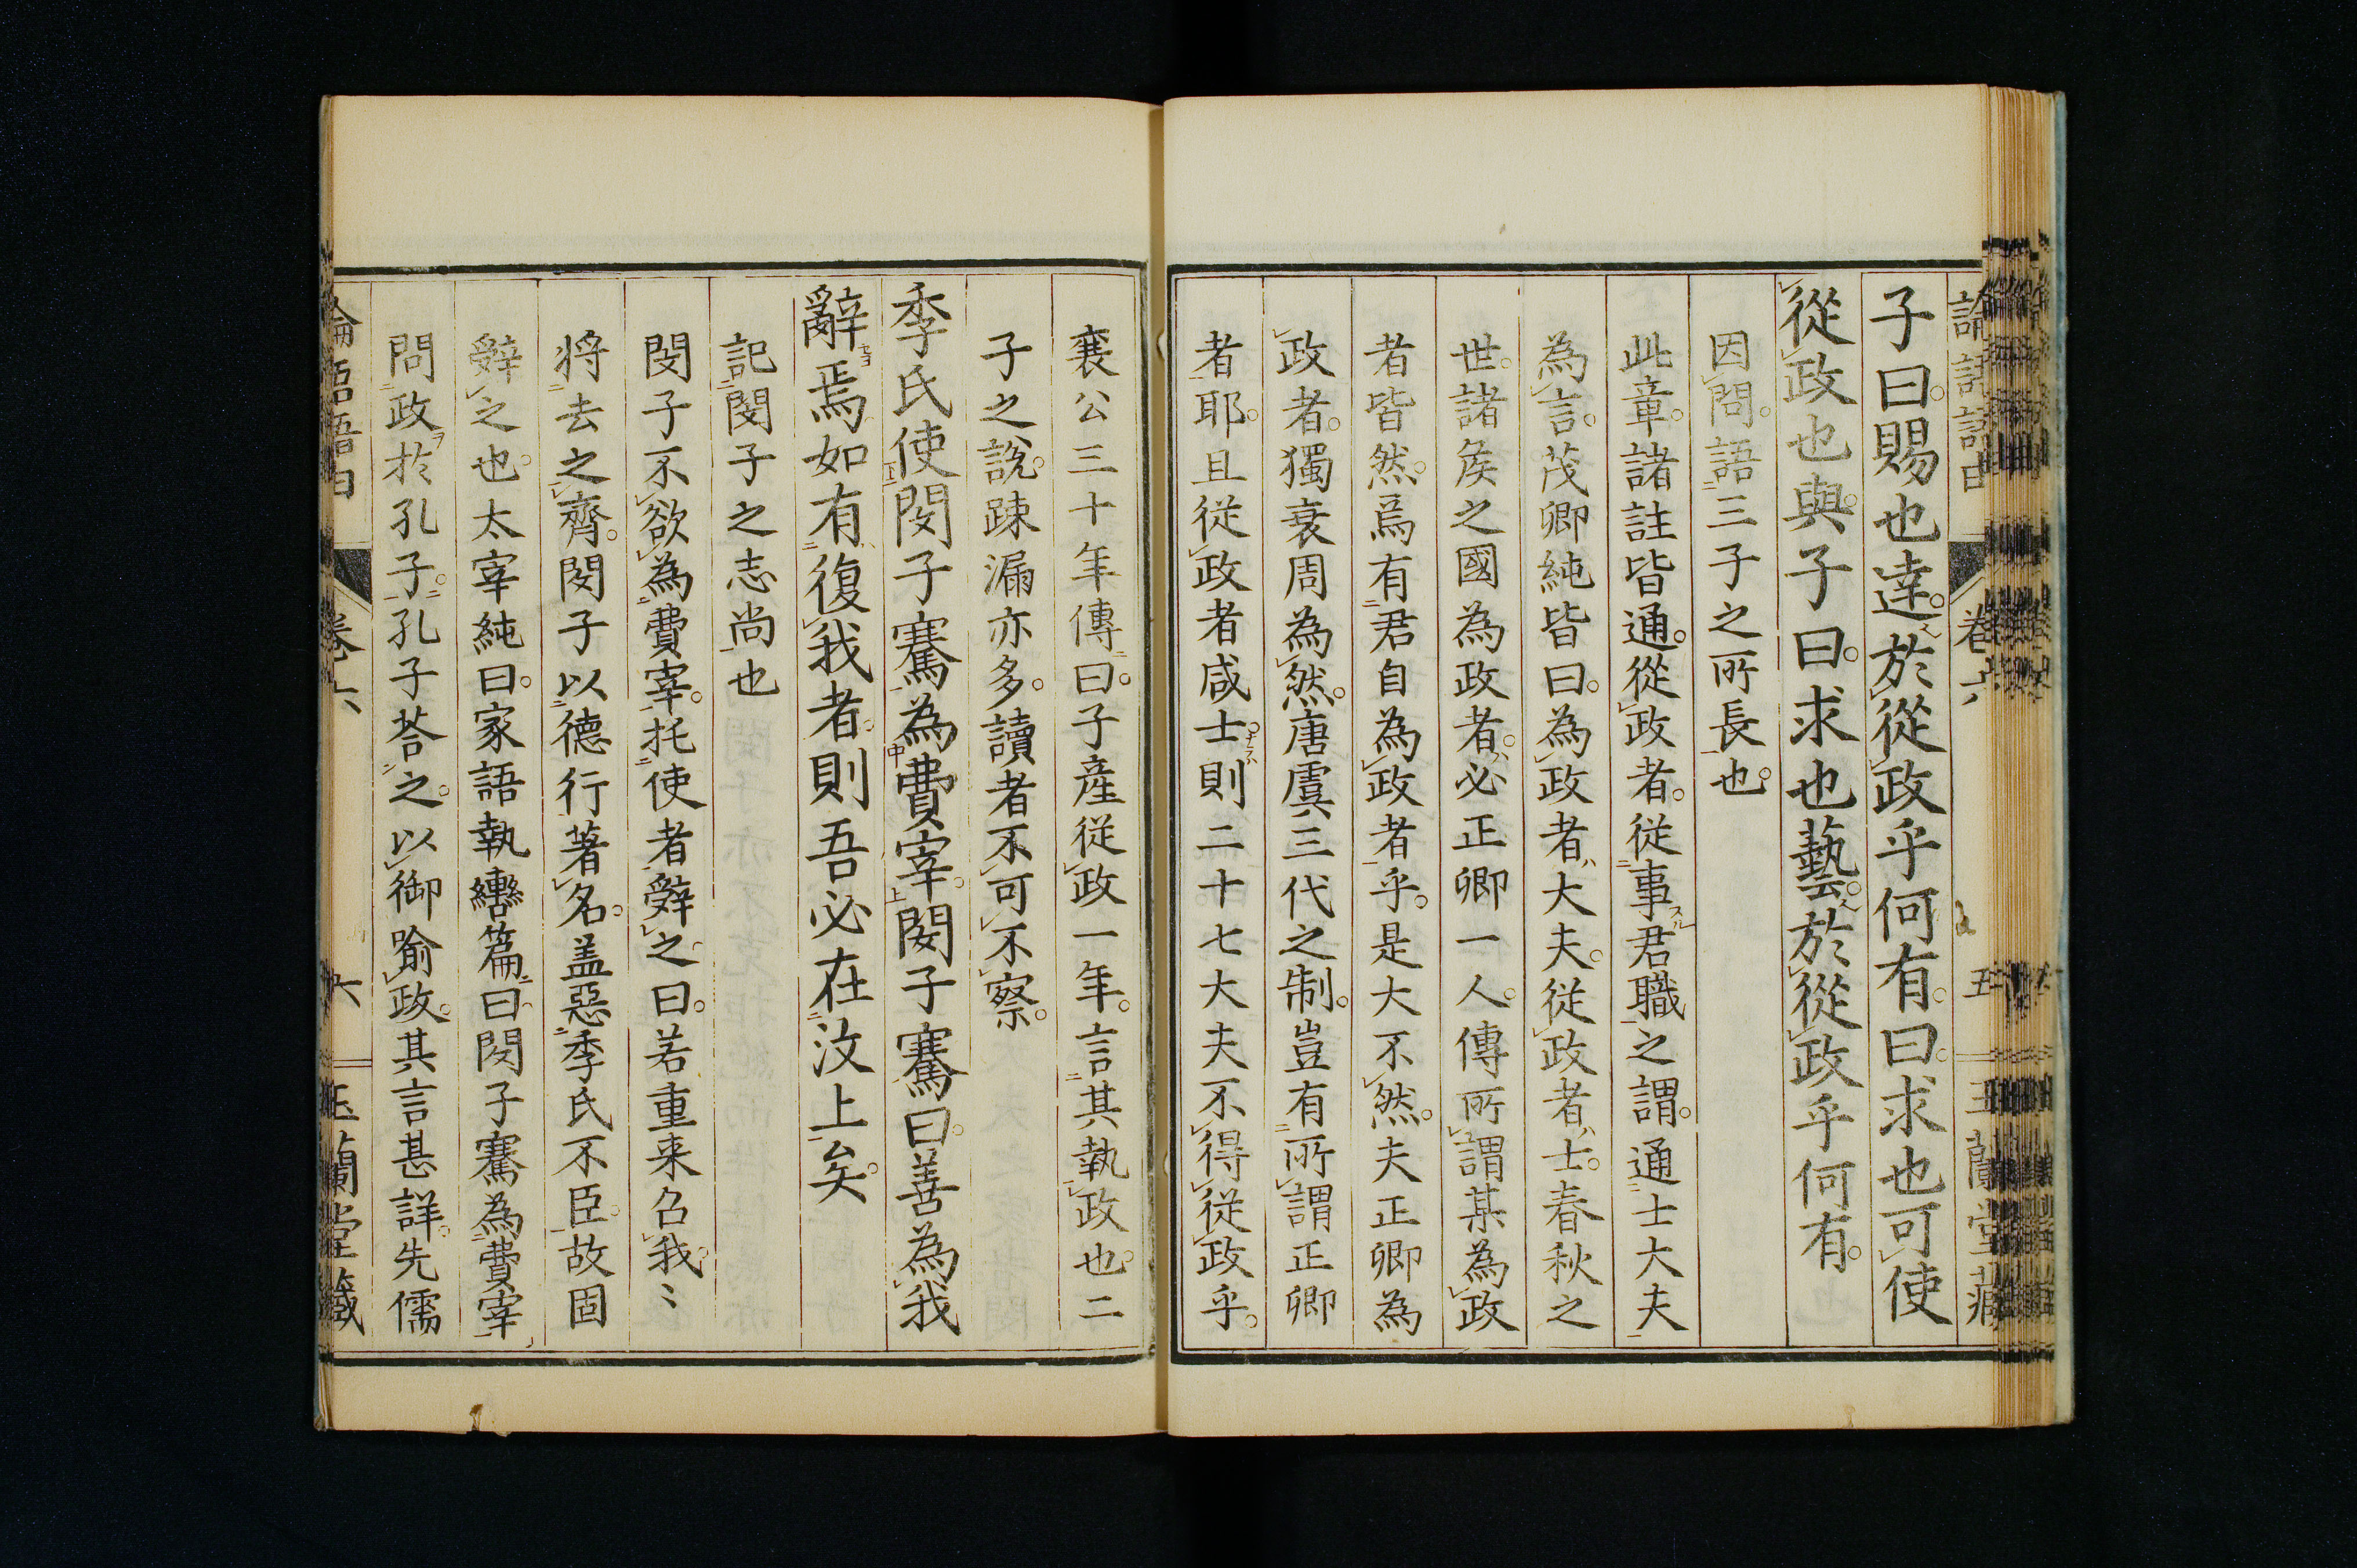 子曰。賜也達。於從政乎何有。曰。求也可使
從政也與。子曰。求也藝。於從政乎何有。
因問。語三子之所長也。
此章。諸註皆通。從政者。從事君職之謂。通士大夫
為言。茂卿純皆曰。為政者、大夫。從政者、士。春秋之
世。諸侯之國為政者。必正卿一人。傳所謂某為政
者皆然。焉有君自為政者乎。是大不然。夫正卿為
政者。獨衰周為然。唐虞三代之制。豈有所謂正卿
者耶。且從政者咸士。則二十七大夫不得從政乎。
襄公三十年傳曰。子產從政一年。言其執政也。二
子之說。踈漏亦多。讀者不可不察。
季氏使閔子騫為費宰。閔子騫曰。善為我
辭焉。如有復我者。則吾必在汶上矣。
記閔子之志尚也
閔子不欲為費宰。托使者辤之。曰。若重来召我〻
将去之齊。閔子以德行著名。盖惡季氏不臣。故固
辤之也。太宰純曰。家語執轡篇曰。閔子騫為費宰。
問政於孔子。孔子荅之。以御喻政。其言甚詳。先儒
卷六
六
玉蘭堂藏